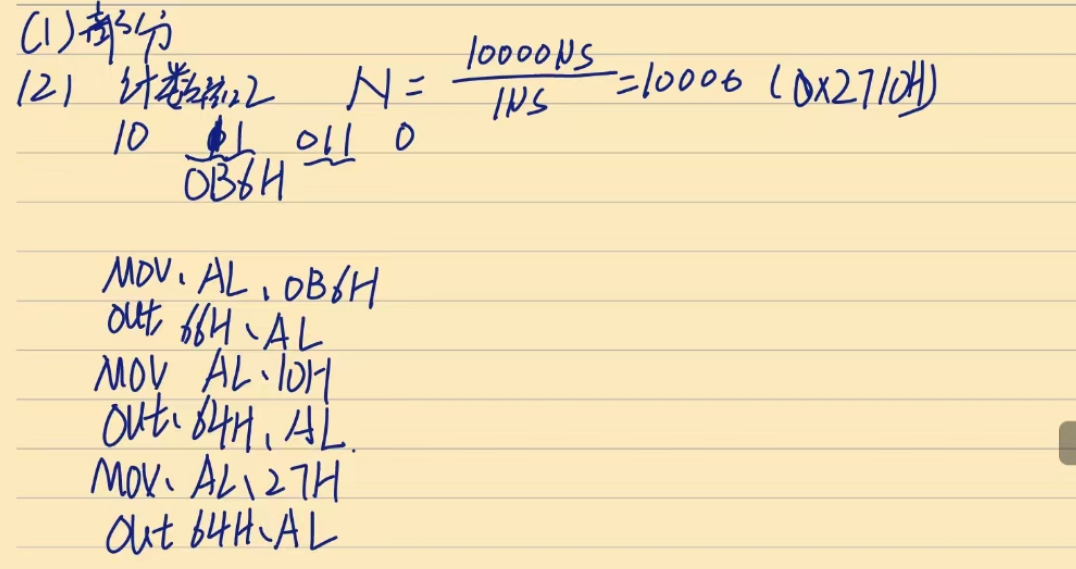 (1) 部分
(2) 计数器2 N = 10000NS / 1NS = 10000 (0x2710H)
10 11 011 0
0B6H
MOV、AL、0B6H
out、66H、AL
MOV AL、10H
OUt、64H、AL.
MOV、AL、27H
Out 64H、AL